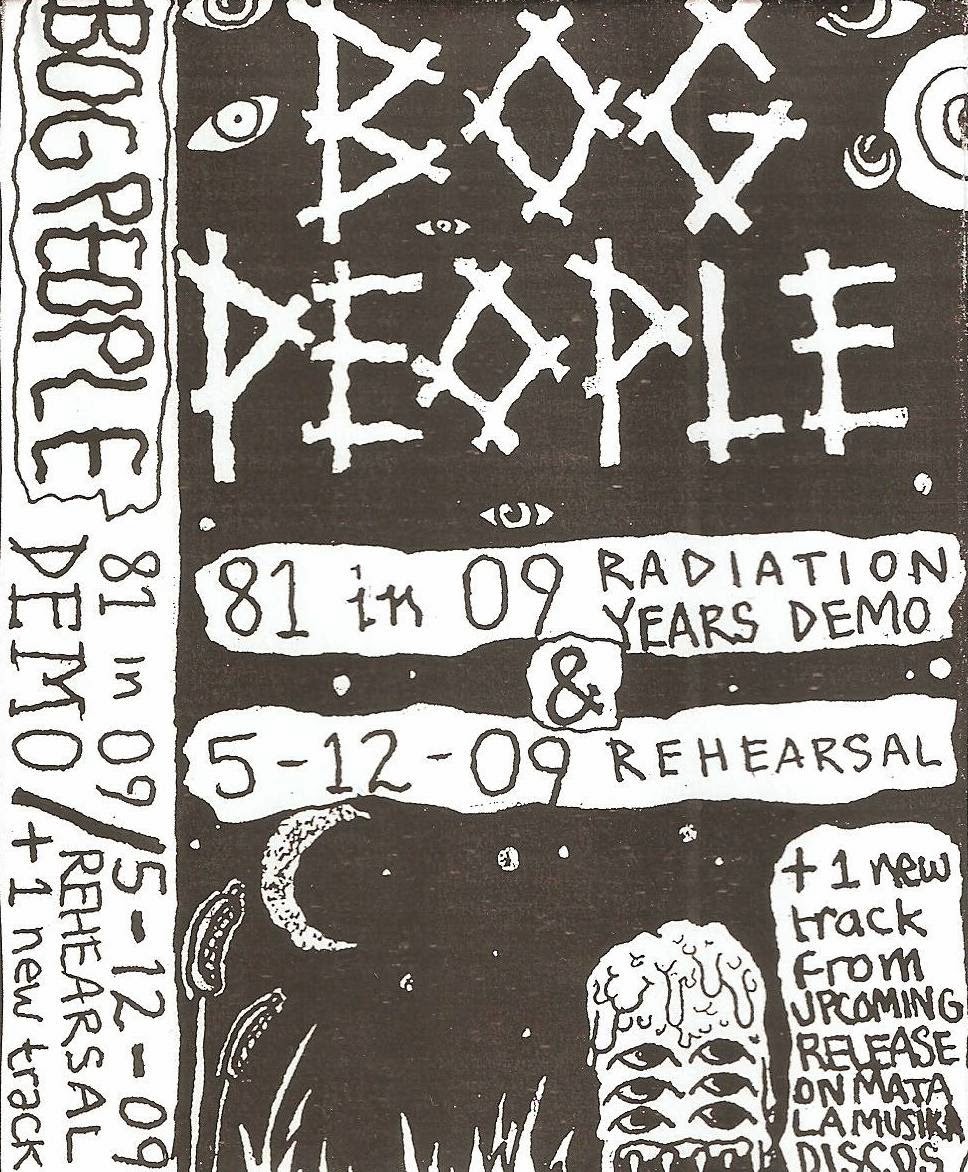 BOG PEOPLE
81 in 09 / 5-12-09
DEMO / REHEARSAL
+ 1 new track
BOG
PEOPLE
81 in 09 RADIATION
YEARS DEMO
&
5-12-09 REHEARSAL
+ 1 new
track
from
UPCOMING
RELEASE
ON MATA
LA MUSIKA
DISCOS